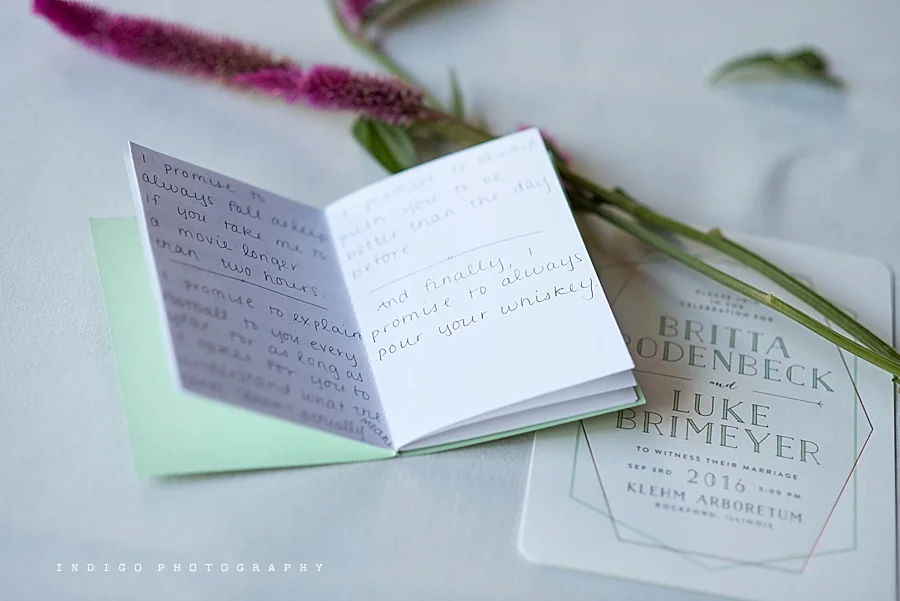 I promise to
always fall asleep
if you take me to
a movie longer
than two hours.
I promise to explain
football to you every
for as long as
it takes for you to
understand what the
means
actually
I promise to always
push you to be
better than the day
before
And finally, I
promise to always
pour your whiskey.
PLEASE JOIN
IN THE
CELEBRATION FOR
BRITTA
RODENBECK
and
LUKE
BRIMEYER
TO WITNESS THEIR MARRIAGE
SEP 3RD 2016 5:00 PM
KLEHM ARBORETUM
ROCKFORD, ILLINOIS
INDIGO PHOTOGRAPHY